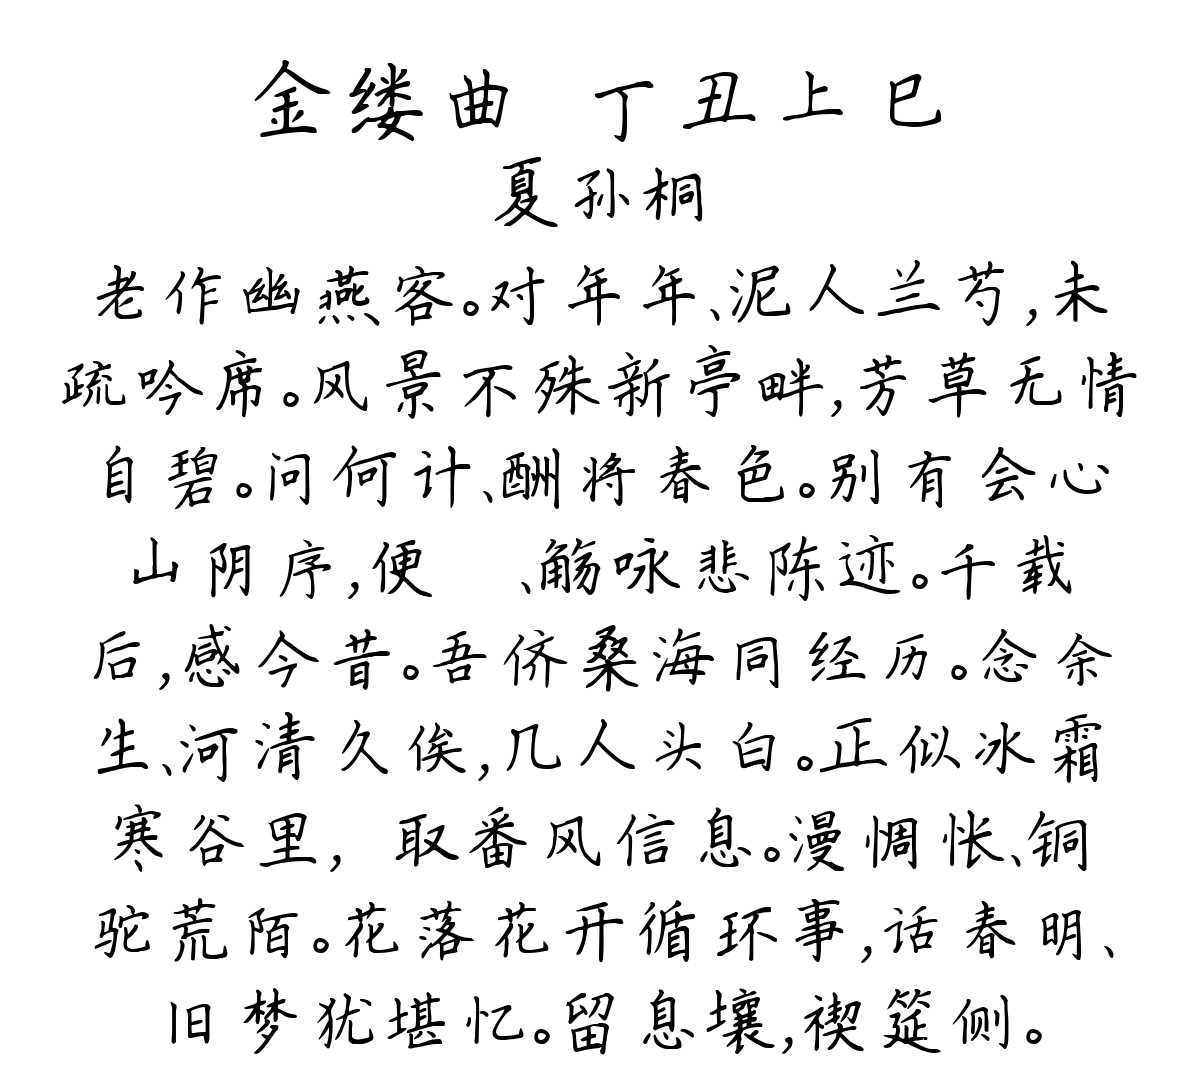 金缕曲 丁丑上巳
夏孙桐
老作幽燕客。对年年、泥人兰芍,未
疏吟席。风景不殊新亭畔,芳草无情
自碧。问何计、酬将春色。别有会心
山阴序,便 、觞咏悲陈迹。千载
后,感今昔。吾侪桑海同经历。念余
生、河清久俟,几人头白。正似冰霜
寒谷里, 取番风信息。漫惆怅、铜
驼荒陌。花落花开循环事,话春明、
旧梦犹堪忆。留息壤,禊筵侧。